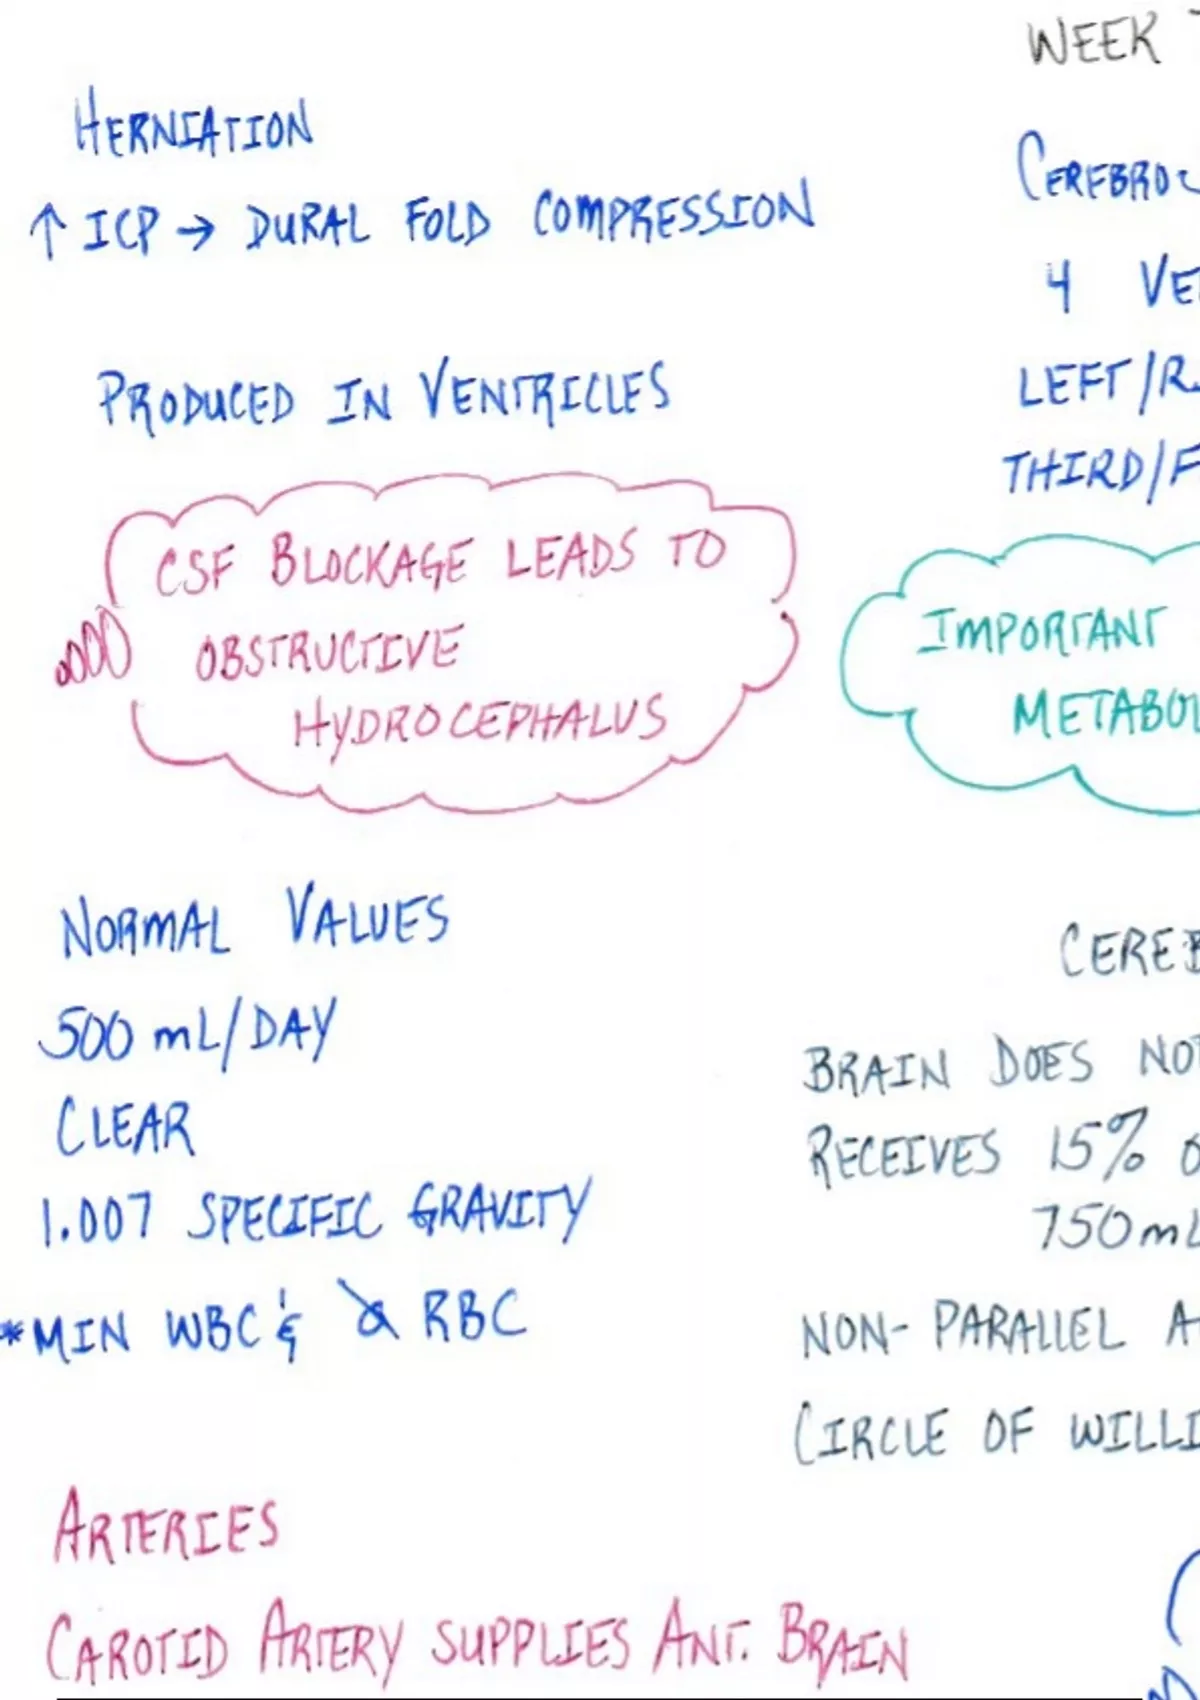 HERNIATION
↑ ICP → DURAL FOLD COMPRESSION
PRODUCED IN VENTRICLES
CSF BLOCKAGE LEADS TO
OBSTRUCTIVE
HYDROCEPHALUS
NORMAL VALUES
500 mL/DAY
CLEAR
1.007 SPECIFIC GRAVITY
*MIN WBC & RBC
ARTERIES
CAROTID ARTERY SUPPLIES ANT. BRAIN
WEEK
CEREBRO
4 VE
LEFT/R
THIRD/F
IMPORTANT
METABOL
CEREB
BRAIN DOES NOT
RECEIVES 15% O
750 mL
NON-PARALLEL A
CIRCLE OF WILLI